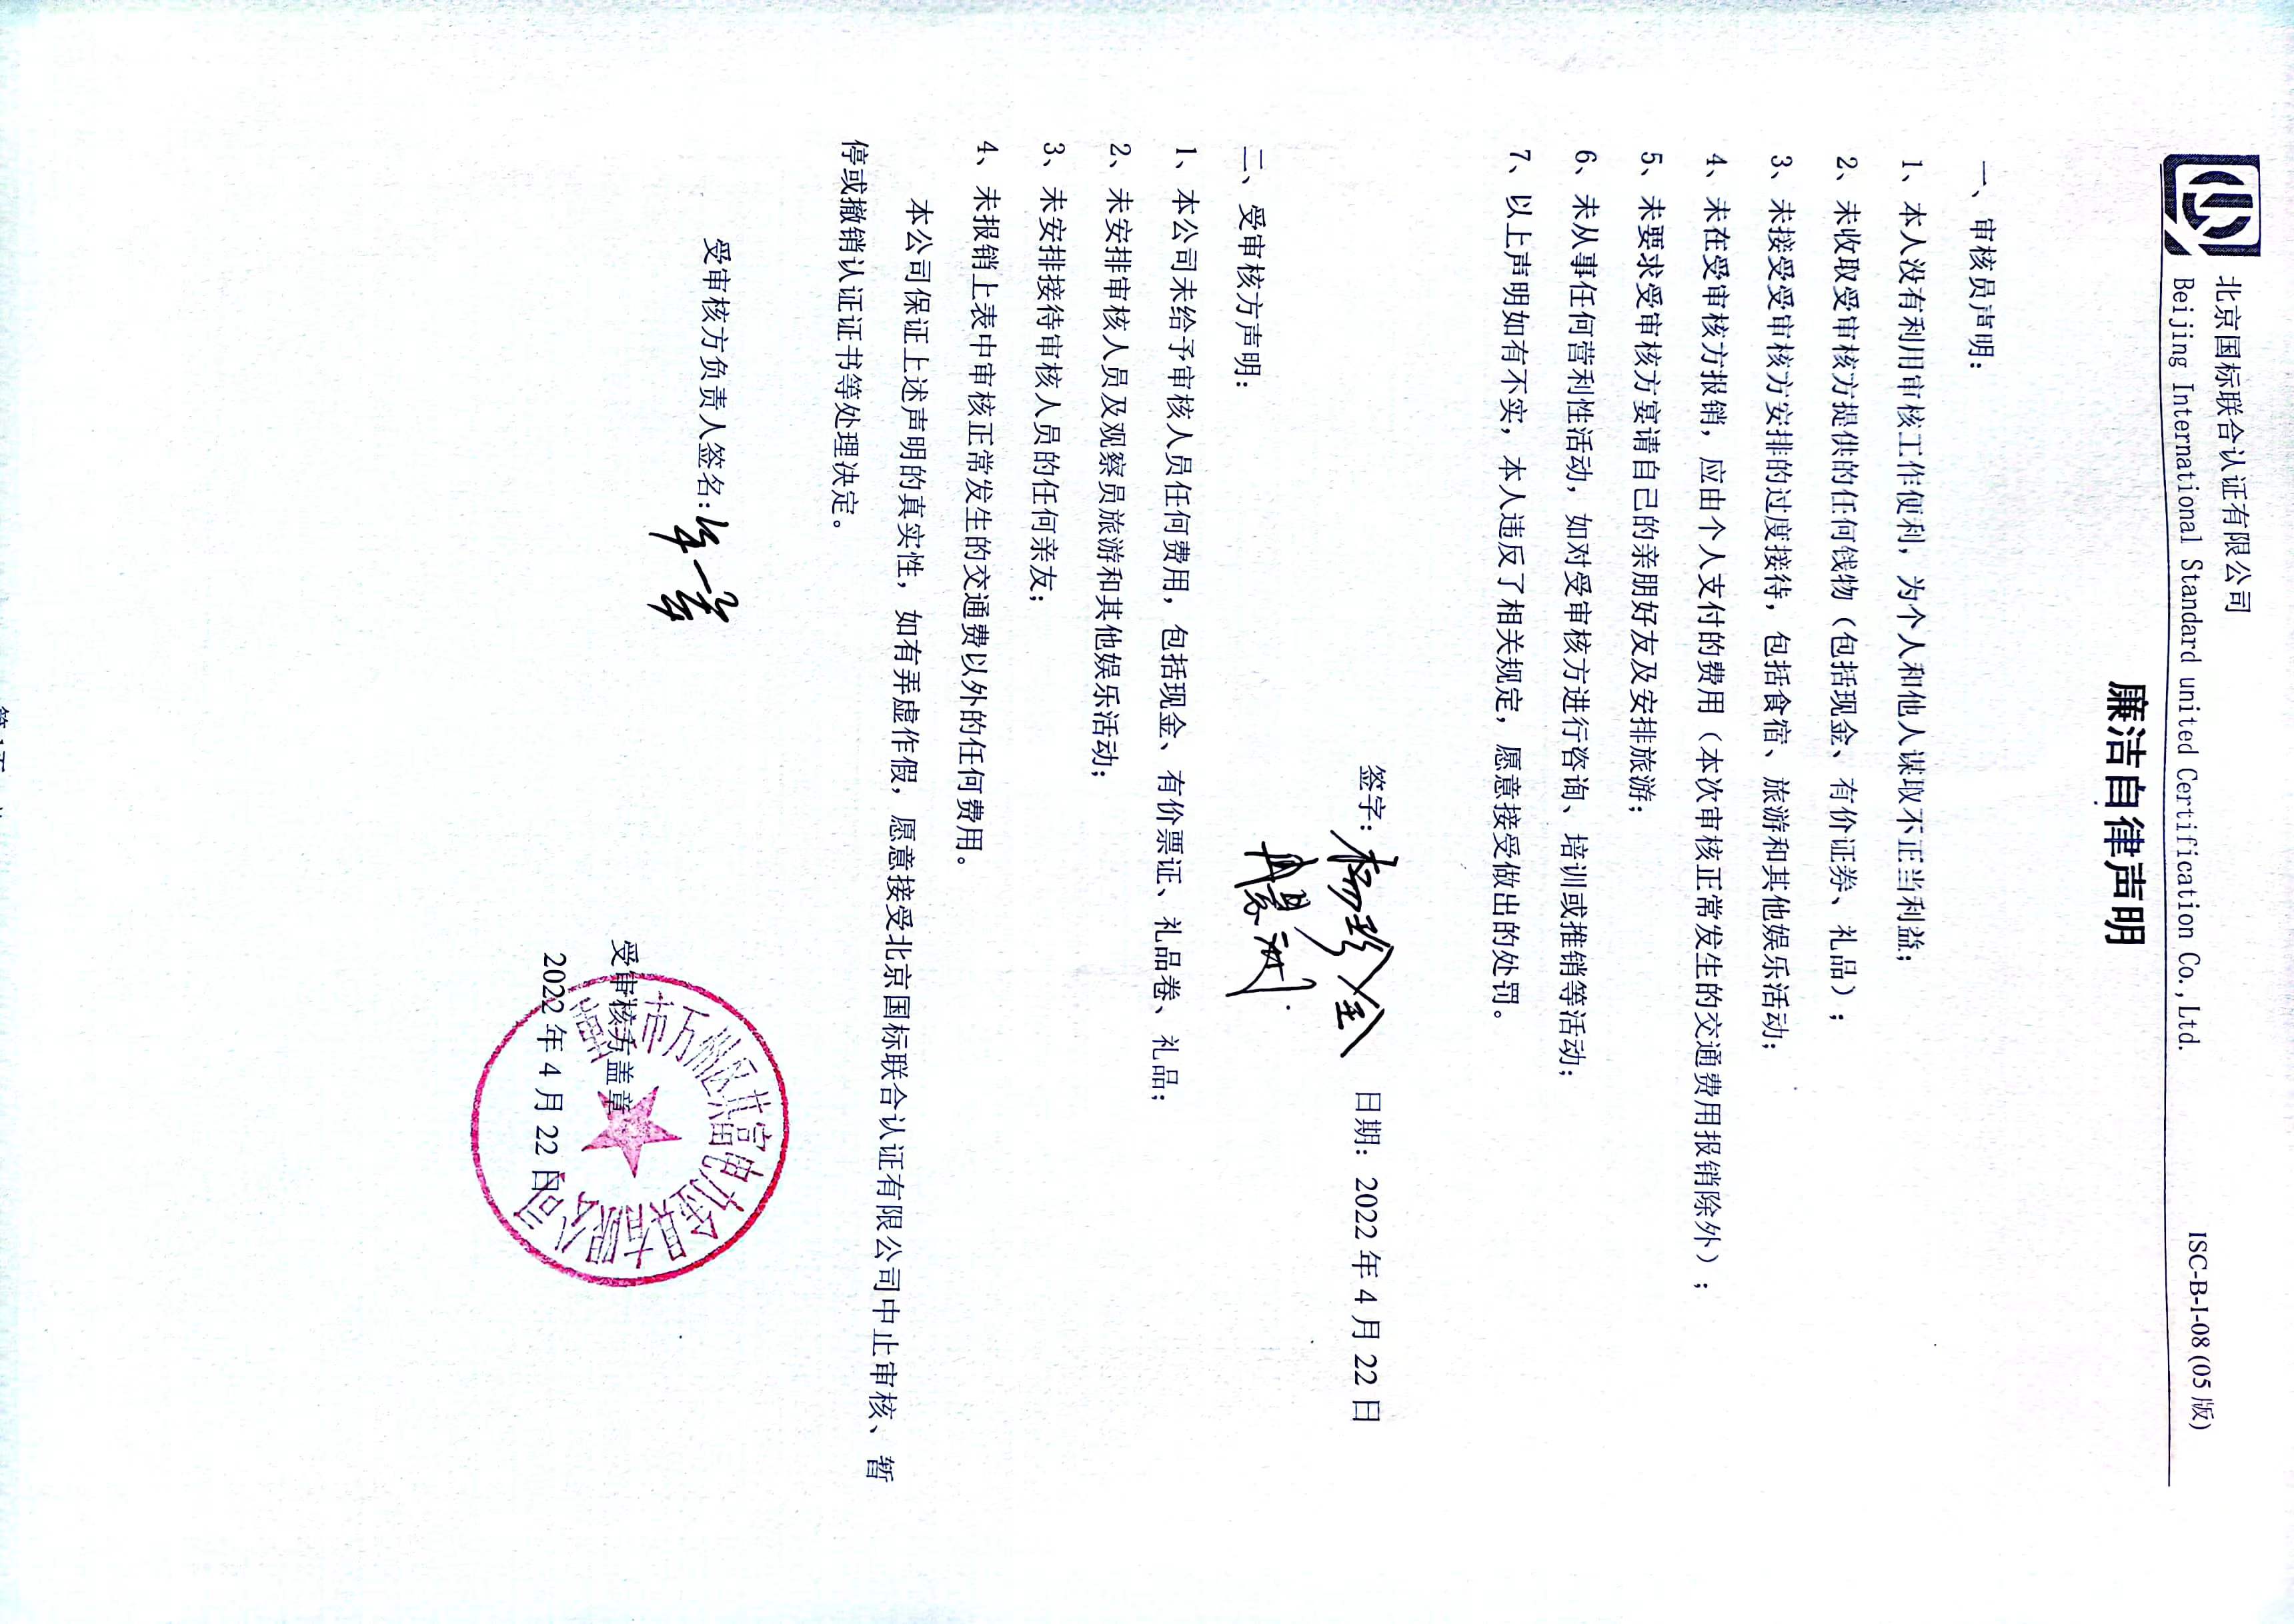 北京国标联合认证有限公司
Beijing International Standard united Certification Co., Ltd.
ISC-B-I-08 (05 版)
廉洁自律声明
一、审核员声明：
1、本人没有利用审核工作便利，为个人和他人谋取不正当利益；
2、未收取受审核方提供的任何钱物（包括现金、有价证券、礼品）；
3、未接受受审核方安排的过度接待，包括食宿、旅游和其他娱乐活动；
4、未在受审核方报销，应由个人支付的费用（本次审核正常发生的交通费用报销除外）；
5、未要求受审核方宴请自己的亲朋好友及安排旅游；
6、未从事任何营利性活动，如对受审核方进行咨询、培训或推销等活动；
7、以上声明如有不实，本人违反了相关规定，愿意接受做出的处罚。
签字：杨珍全 日期：2022 年 4 月 22 日
二、受审核方声明：
1、本公司未给予审核人员任何费用，包括现金、有价票证、礼品卷、礼品；
2、未安排审核人员及观察员旅游和其他娱乐活动；
3、未安排接待审核人员的任何亲友；
4、未报销上表中审核正常发生的交通费以外的任何费用。
本公司保证上述声明的真实性，如有弄虚作假，愿意接受北京国标联合认证有限公司中止审核、暂
停或撤销认证证书等处理决定。
受审核方负责人签名：
受审核方盖章
2022 年 4 月 22 日
市万州区北富电力金具有限公司